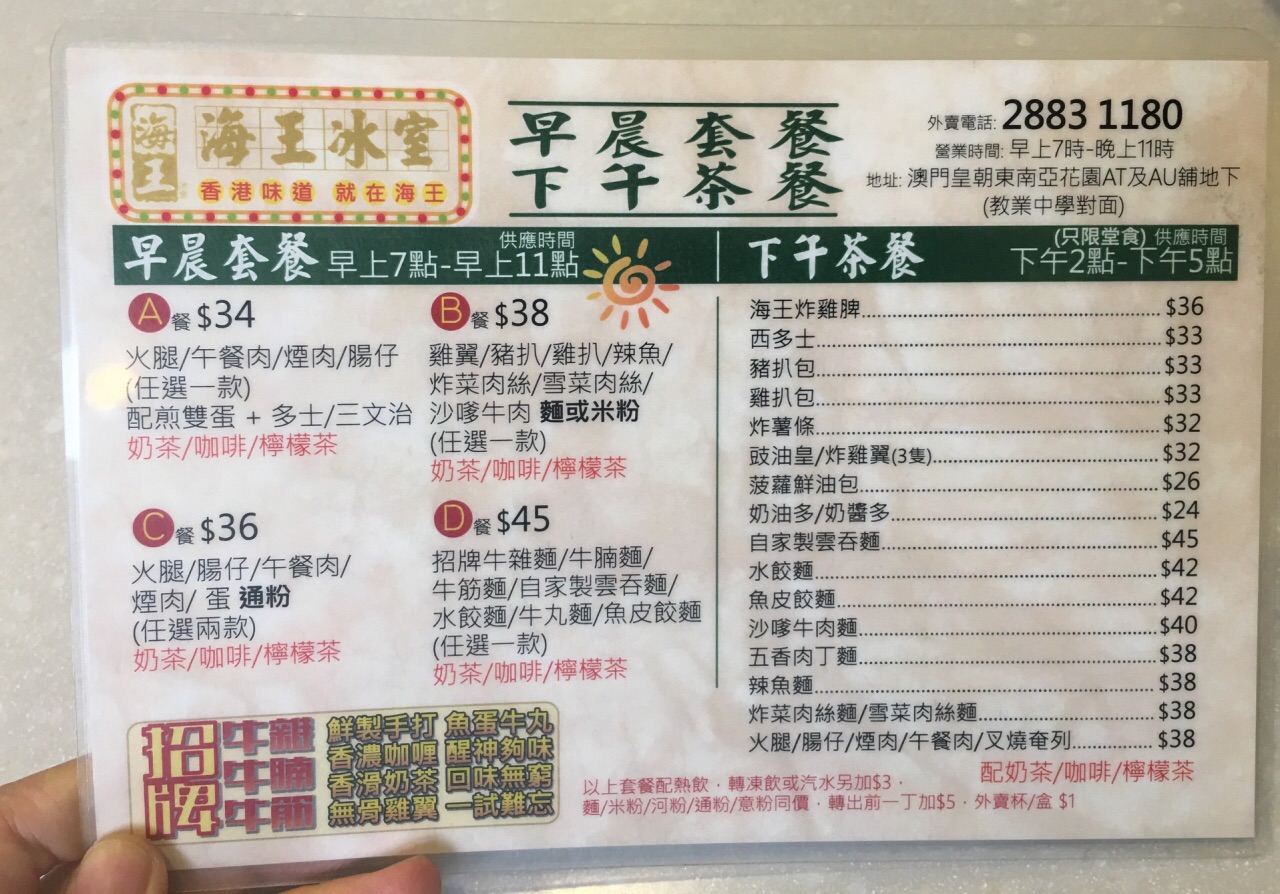 海王
海王冰室
香港味道 就在海王
早晨套餐
下午茶餐
外賣電話: 2883 1180
營業時間: 早上7時-晚上11時
地址: 澳門皇朝東南亞花園AT及AU舖地下
(教業中學對面)
早晨套餐 供應時間
早上7點-早上11點
A餐 $34
火腿/午餐肉/煙肉/腸仔
(任選一款)
配煎雙蛋 + 多士/三文治
奶茶/咖啡/檸檬茶
B餐 $38
雞翼/豬扒/雞扒/辣魚/
炸菜肉絲/雪菜肉絲/
沙嗲牛肉 麵或米粉
(任選一款)
奶茶/咖啡/檸檬茶
C餐 $36
火腿/腸仔/午餐肉/
煙肉/ 蛋 通粉
(任選兩款)
奶茶/咖啡/檸檬茶
D餐 $45
招牌牛雜麵/牛腩麵/
牛筋麵/自家製雲吞麵/
水餃麵/牛丸麵/魚皮餃麵
(任選一款)
奶茶/咖啡/檸檬茶
招牌
牛雜
牛腩
牛筋
鮮製手打 魚蛋牛丸
香濃咖喱 醒神夠味
香滑奶茶 回味無窮
無骨雞翼 一試難忘
下午茶餐 (只限堂食) 供應時間
下午2點-下午5點
海王炸雞脾 $36
西多士 $33
豬扒包 $33
雞扒包 $33
炸薯條 $32
豉油皇/炸雞翼(3隻) $32
菠蘿鮮油包 $26
奶油多/奶醬多 $24
自家製雲吞麵 $45
水餃麵 $42
魚皮餃麵 $42
沙嗲牛肉麵 $40
五香肉丁麵 $38
辣魚麵 $38
炸菜肉絲麵/雪菜肉絲麵 $38
火腿/腸仔/煙肉/午餐肉/叉燒奄列 $38
配奶茶/咖啡/檸檬茶
以上套餐配熱飲，轉凍飲或汽水另加$3，
麵/米粉/河粉/通粉/意粉同價，轉出前一丁加$5，外賣杯/盒 $1